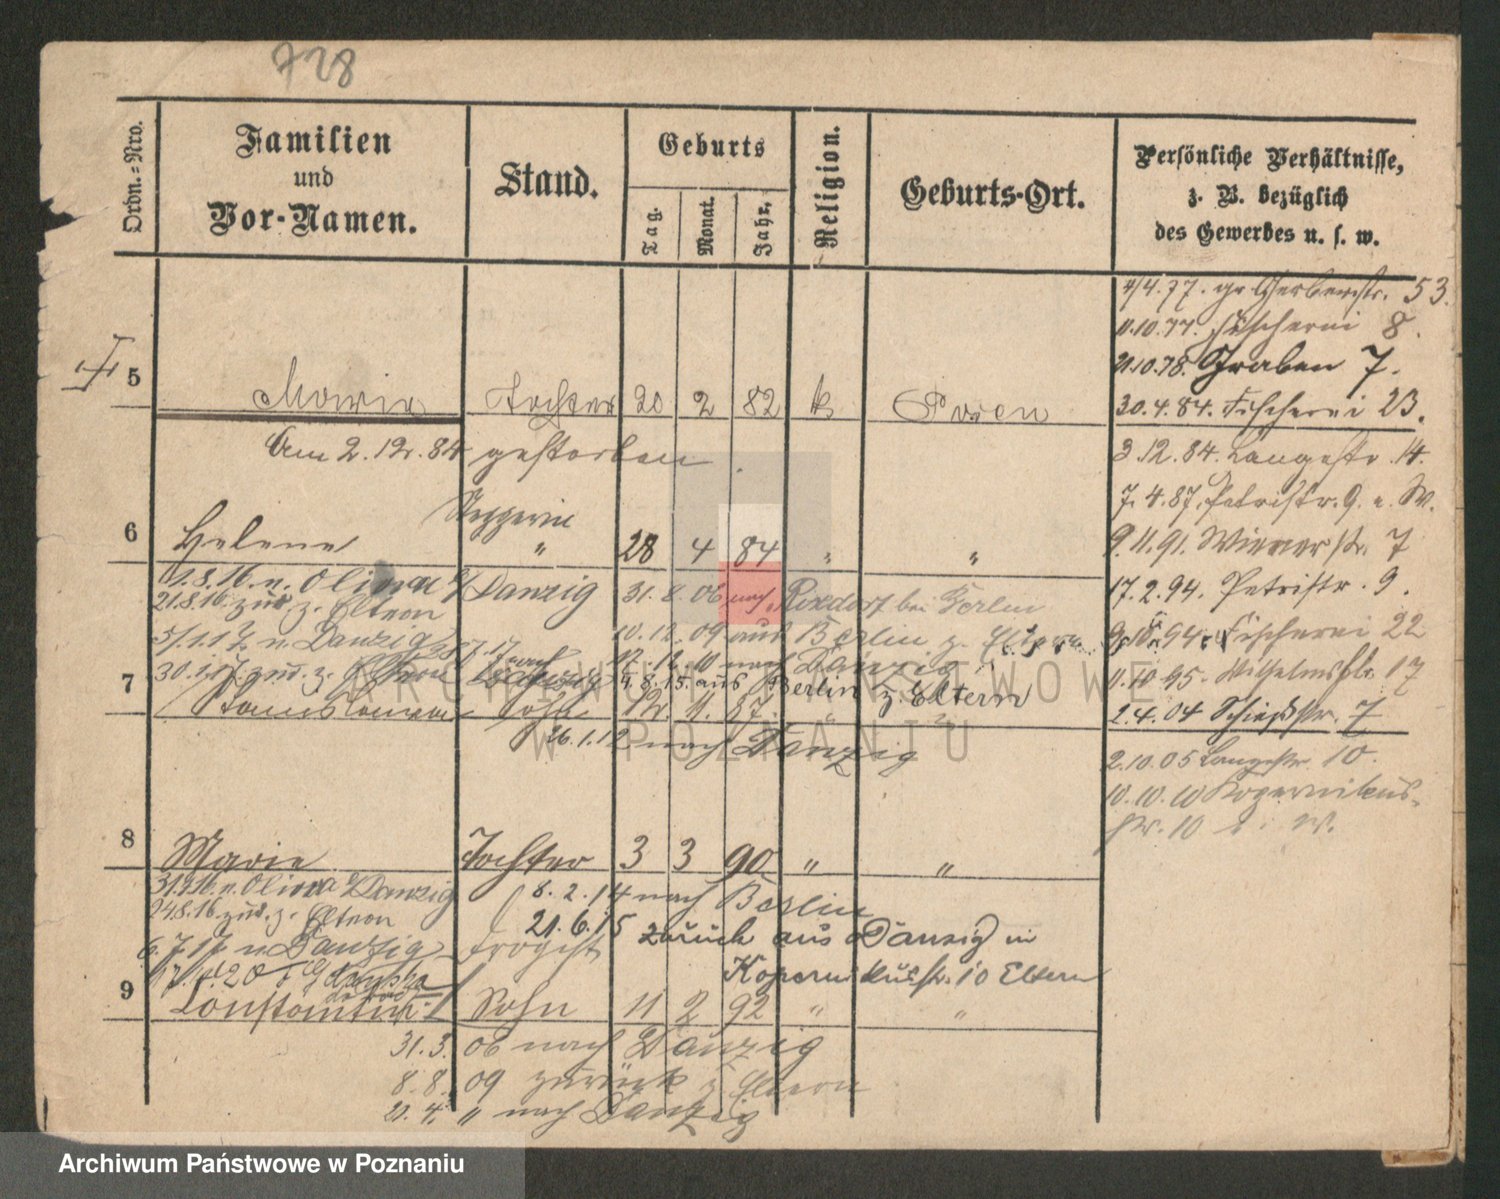 728
Ordn.-Nro.
Familien
und
Vor-Namen.
Stand.
Geburts
Tag.
Monat.
Jahr.
Religion.
Geburts-Ort.
Persönliche Verhältnisse,
z. B. bezüglich
des Gewerbes u. s. w.
4/4.77. gr Gerberstr. 53.
11.10.77. Fischerei 8.
21.10.78. Graben 7.
30.4.84. Fischerei 23.
3.12.84. Langestr. 14.
7.4.87. Petristr. 9. u. W.
9.11.91. Wienerstr. 7
17.2.94. Petristr. 9.
94 Fischerei 22
11.10.95. Wilhelmspl. 17
2.4.04 Schießstr. 7
2.10.05 Langestr. 10.
10.10.10 Kopernikus-
str. 10 W.
5 Maria Tochter 20 2 82 k Posen
Am 2.12.84 gestorben.
6 Helene " 28 4 84 " "
1.8.16 n. Oliva b/ Danzig 31.8.06 nach Rixdorf bei Berlin
21.8.16 zur. z. Eltern
10.12.09 aus Berlin z. Eltern
n. Danzig
12.12.10 nach Danzig
30.1.17. zur. z. Eltern
4.8.15. aus Berlin z. Eltern
7 Sohn 12. 11. 87.
26.1.12 nach Danzig
8 Marie Tochter 3 3 90 " "
n. Oliva b/ Danzig 8.2.14 nach Berlin
24.8.16 zur. z. Eltern
21.6.15 zurück aus Danzig in
6.7.17 n. Danzig Drogist
Kopernikusstr. 10 Eltern
9 Constantin Sohn 11 2 92 " "
31.3. 06 nach Danzig
8.8. 09 zurück z. Eltern
20.4. " nach Danzig
ARCHIWUM PAŃSTWOWE
W POZNANIU
Archiwum Państwowe w Poznaniu